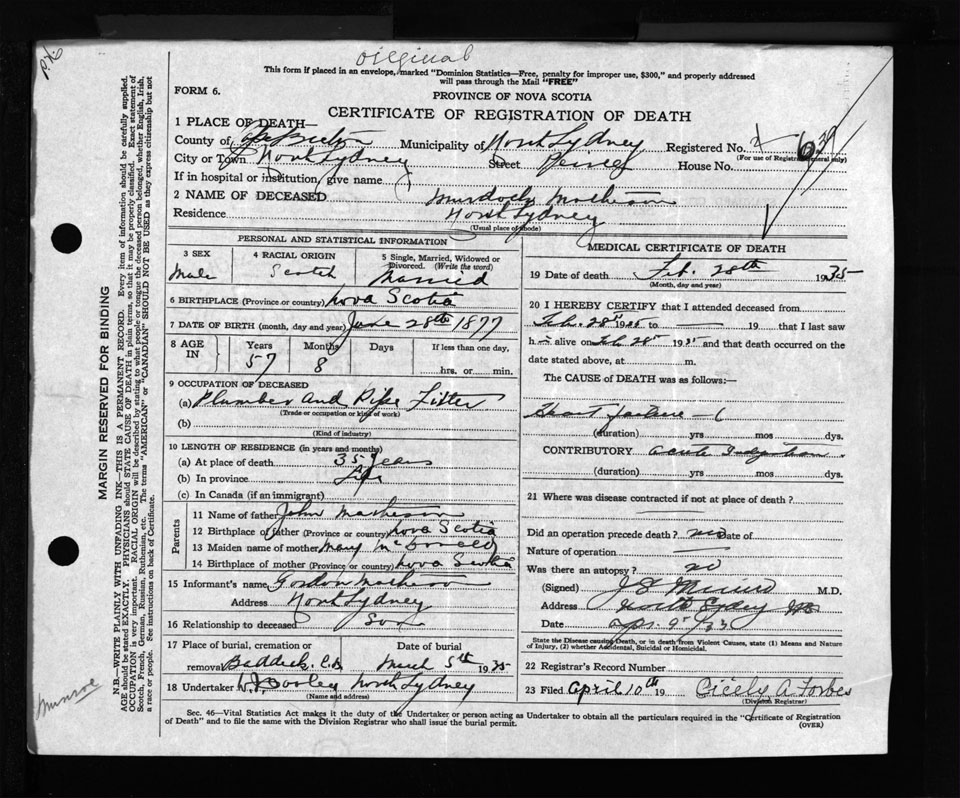 Original
This form if placed in an envelope, marked "Dominion Statistics—Free, penalty for improper use, $300," and properly addressed
will pass through the Mail "FREE"
FORM 6.
PROVINCE OF NOVA SCOTIA
CERTIFICATE OF REGISTRATION OF DEATH
1 PLACE OF DEATH—
County of Municipality of North Sydney Registered No. 639
(For use of Registrar General only)
City or Town North Sydney Street Peirce House No.
If in hospital or institution, give name
2 NAME OF DECEASED Murdoch Matheson
Residence North Sydney
(Usual place of abode)
PERSONAL AND STATISTICAL INFORMATION
3 SEX Male
4 RACIAL ORIGIN Scotch
5 Single, Married, Widowed or Divorced. (Write the word) Married
6 BIRTHPLACE (Province or country) Nova Scotia
7 DATE OF BIRTH (month, day and year) June 28th 1877
8 AGE IN Years Months Days If less than one day,
57 8 hrs. or min.
9 OCCUPATION OF DECEASED
(a) Plumber and Pipe Fitter
(Trade or occupation or kind of work)
(b)
(Kind of industry)
10 LENGTH OF RESIDENCE (in years and months)
(a) At place of death 35 years
(b) In province Life
(c) In Canada (if an immigrant)
Parents
11 Name of father John Matheson
12 Birthplace of father (Province or country) Nova Scotia
13 Maiden name of mother Mary McDonald
14 Birthplace of mother (Province or country) Nova Scotia
15 Informant's name Gordon Matheson
Address North Sydney
16 Relationship to deceased Son
17 Place of burial, cremation or removal Baddeck, C.B.
Date of burial March 5th 1935
18 Undertaker Dooley North Sydney
(Name and address)
MEDICAL CERTIFICATE OF DEATH
19 Date of death Feb. 28th 1935
(Month, day and year)
20 I HEREBY CERTIFY that I attended deceased from
Feb. 28th 1935 to — 19 that I last saw
h alive on Feb 28th 1935 and that death occurred on the
date stated above, at m.
The CAUSE of DEATH was as follows:—
Heart failure
(duration) yrs mos dys.
CONTRIBUTORY Acute Indigestion
(duration) yrs mos dys.
21 Where was disease contracted if not at place of death?
Did an operation precede death? no Date of
Nature of operation —
Was there an autopsy? no
(Signed) M.D.
Address North Sydney N.S.
Date Apr. 9th
State the Disease causing Death, or in death from Violent Causes, state (1) Means and Nature
of Injury, (2) whether Accidental, Suicidal or Homicidal.
22 Registrar's Record Number
23 Filed April 10th 19 Cicely A. Forbes
(Division Registrar)
Sec. 46—Vital Statistics Act makes it the duty of the Undertaker or person acting as Undertaker to obtain all the particulars required in the "Certificate of Registration
of Death" and to file the same with the Division Registrar who shall issue the burial permit.
(OVER)
MARGIN RESERVED FOR BINDING
N.B.—WRITE PLAINLY WITH UNFADING INK—THIS IS A PERMANENT RECORD. Every item of information should be carefully supplied.
AGE should be stated EXACTLY. PHYSICIANS should STATE CAUSE OF DEATH in plain terms, so that it may be properly classified. Exact statement of
OCCUPATION is very important. RACIAL ORIGIN will be described by stating to what people or tongue the deceased person belonged, whether English, Irish,
Scotch, French, German, Russian, Ruthenian, etc. The terms "AMERICAN" or "CANADIAN" SHOULD NOT BE USED as they express citizenship but not
a race or people. See instructions on back of Certificate.
Munroe